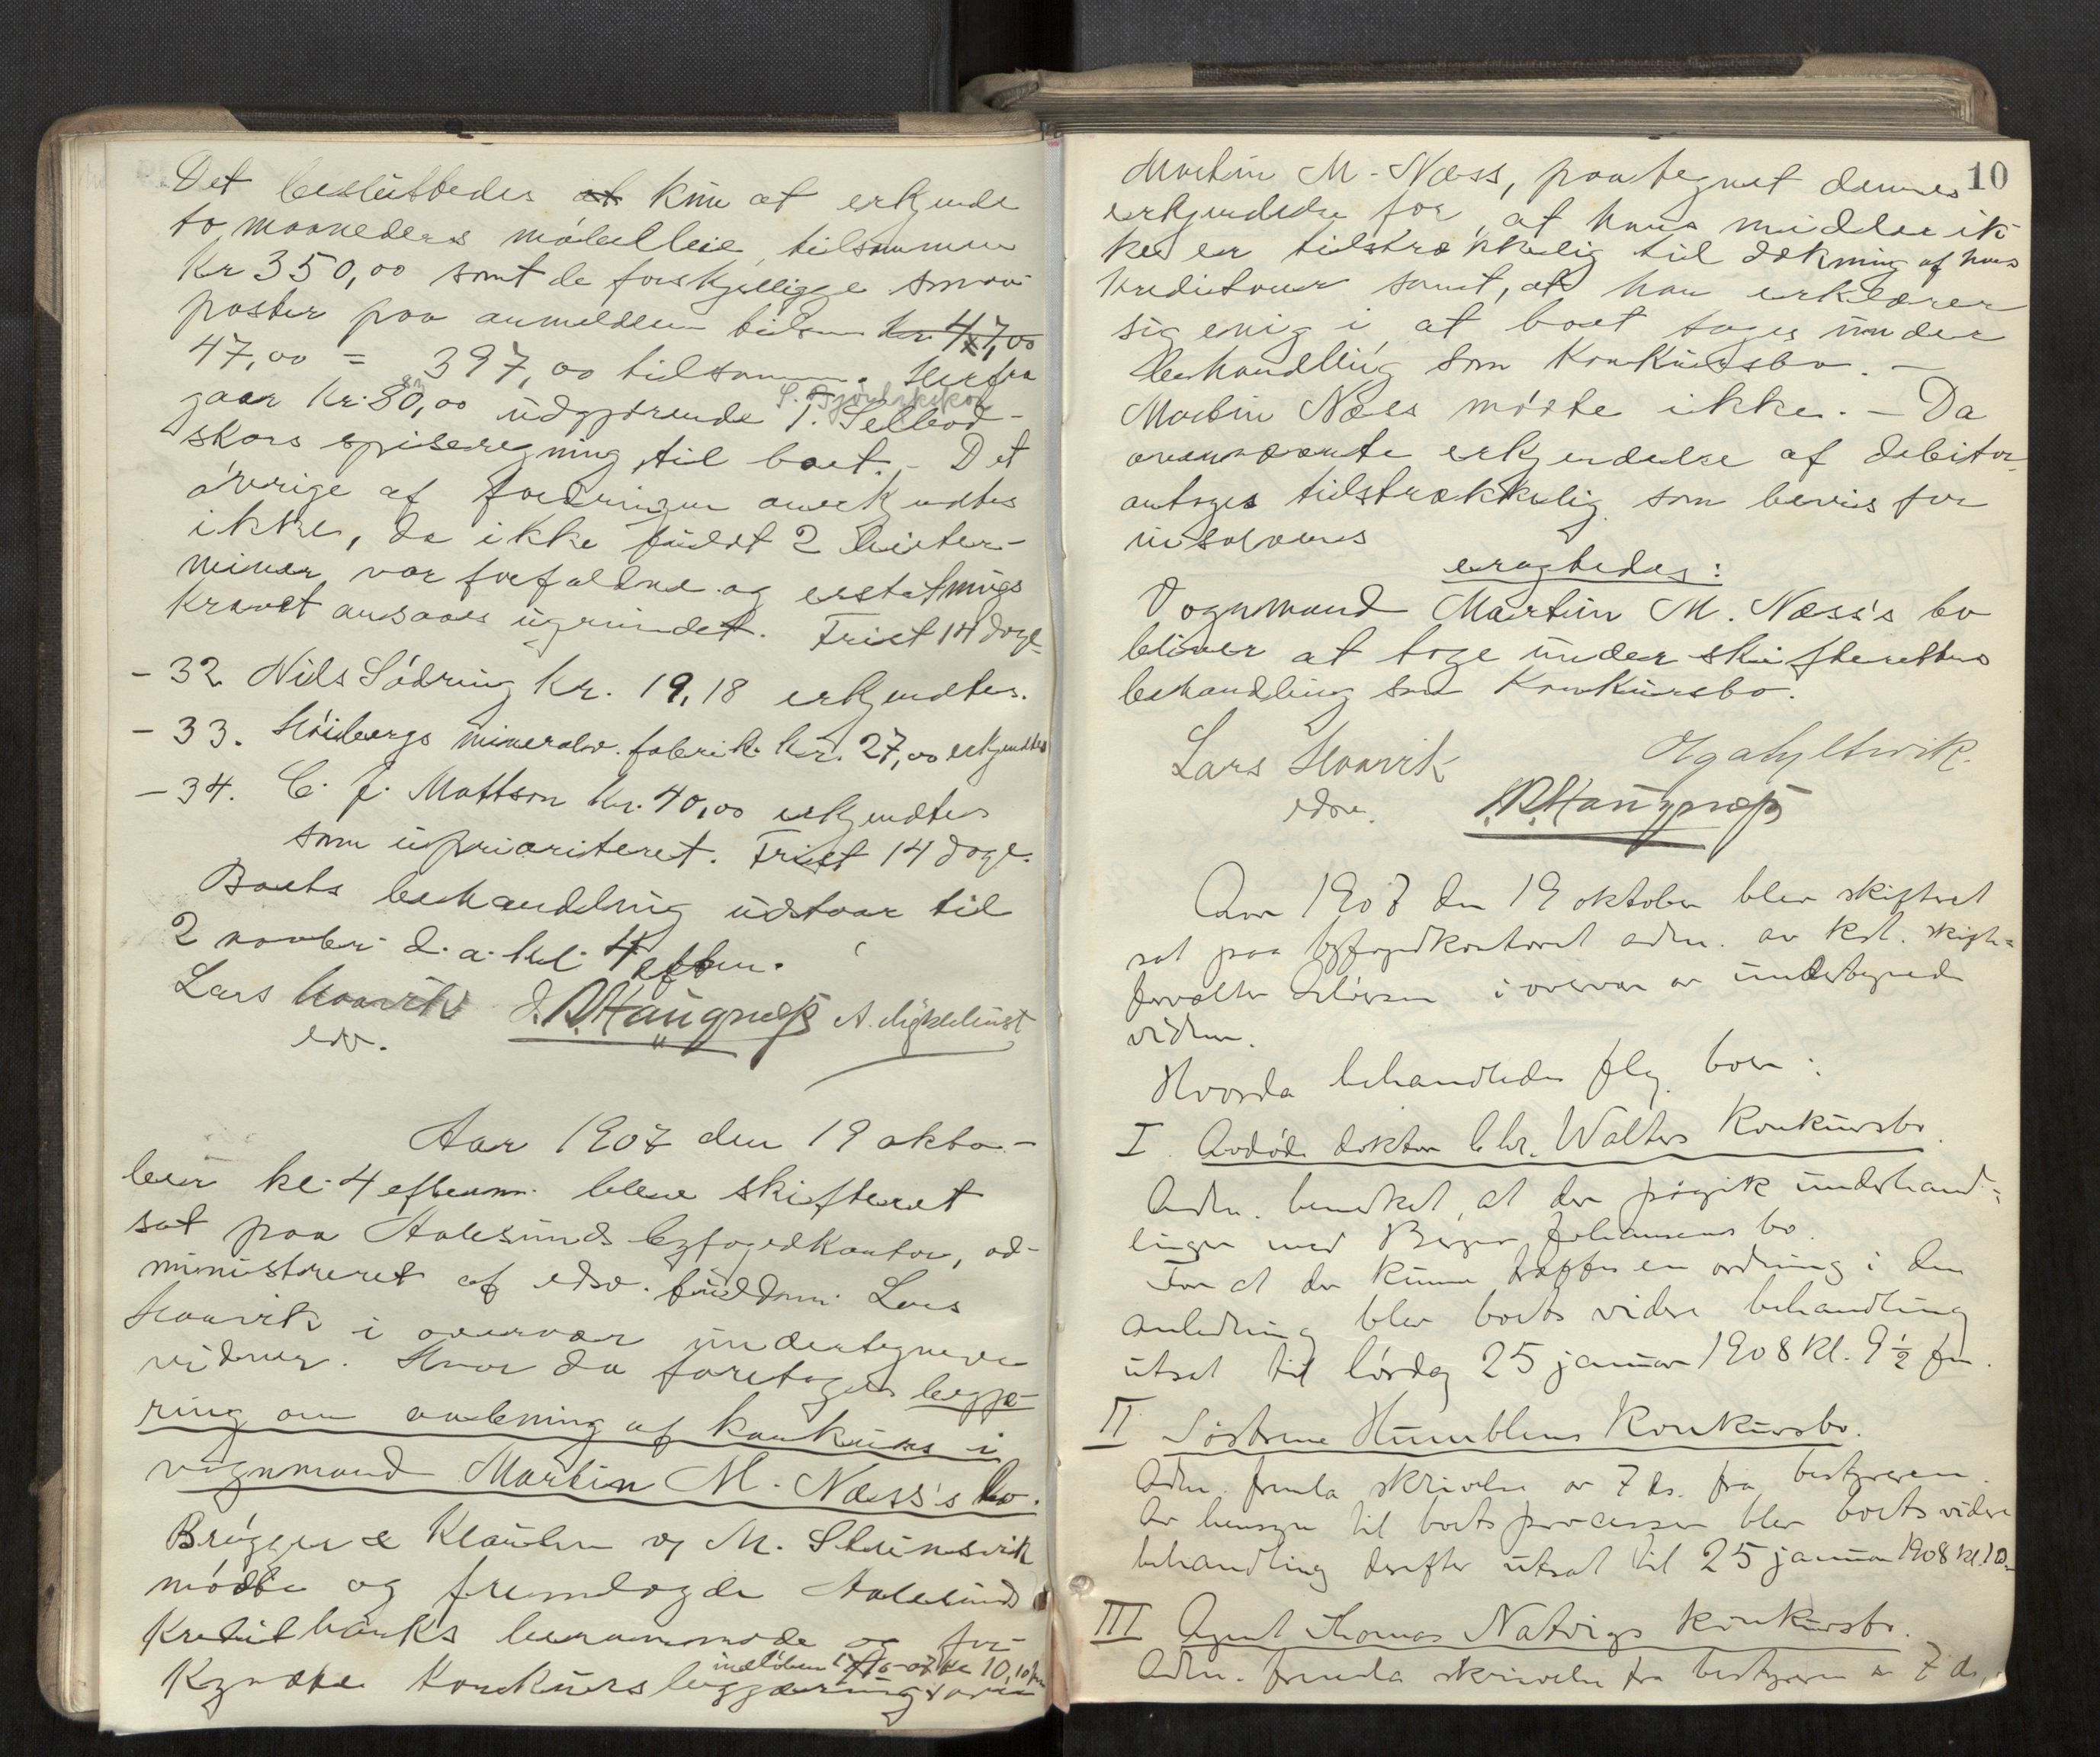 Det besluttedes at kun at erkjende
to maaneders møbelleie, tilsammen
Kr 350,00 samt de forskjellige smaa-
poster paa anmeldelsen tilsm kr 47,00
47,00 = 397,00 tilsammen. Herfra
gaar Kr. 80,00 udgjørende S. Bjørdalskokor T. Sellevod-
skors spiseregning til boet. - Det
øvrige af fordringen anerkjendtes
ikke, da ikke fuldt 2 leieter-
miner var forfaldne og erstatnings
kravet ansaaes ugrundet. Frist 14 dage
- 32 Nils Södring Kr. 19,18 erkjendtes.
- 33. Høibergs mineralv. fabrik. kr. 27,00 erkjendtes
- 34. C. J. Mattson Kr. 40,00 erkjendtes
som uprioriteret. Frist 14 dage.
Boets behandling udstaar til
2 novbr. d. a. kl. 4 efterm.
Lars Haavik
edsv.
Aar 1907 den 19 okto-
ber kl. 4 efterm. blev skifteret
sat paa Aalesunds byfogedkontor, ad-
ministreret af edsv. fuldm. Lars
Haavik i overvær undertegnede
vidner. Hvor da foretoges begjæ-
ring om aabning af konkurs i
vognmand Martin M. Næss's bo.
Brøgger & Klausen og M. Steinsvik
mødte og fremlagde Aalesunds
Kreditbanks berammede og for-
indløben kl 10,10 fm
kyndte konkursbegjæring over
10
Martin M. Næss, paategnet dennes
erkjendelse for, at hans midler ik-
ke er tilstrækkelig til dækning af hans
kreditorer samt, at han erklærer
sig enig i at boet tages under
behandling som Konkursbo. -
Martin Næss mødte ikke. - Da
ovennævnte erkjendelse af debitor
antages tilstrækkelig som bevis for
insolvens
eragtedes:
Vognmand Martin M. Næss's bo
bliver at tage under skifterettens
behandling som Konkursbo.
Lars Haavik
edsv.
Aar 1907 den 19 oktober blev skifteret
sat paa byfogedkontoret adm. av kst. skifte=
forvalter i overvær av undertegnede
vidner.
Hvorda behandledes flg. boer:
I. Avdøde doktor Chr. Walters Konkursbo.
Adm. bemerket, at der pågik underhand=
linger med Birger Johansens bo.
For at der kunne træffes en ordning i den
anledning blev boets videre behandling
utsat til lørdag 25 januar 1908 kl. 9 ½ fm.
II Søstrene Humblens Konkursbo.
Adm. fremla skrivelse av 7 ds. fra bestyreren.
Av hensyn til boets processer blev boets videre
behandling derefter utsat til 25 januar 1908 kl. 10
III Agent Thomas Natvigs Konkursbo.
Adm. fremla skrivelse fra bestyreren av 7 ds.